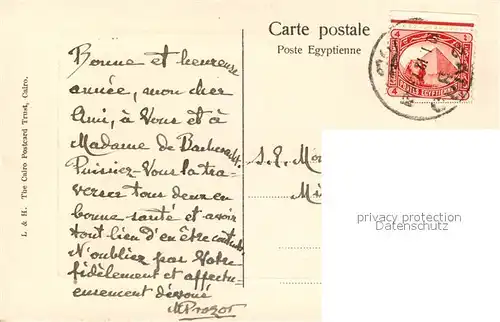 Carte postale
Poste Egyptienne
L & H. The Cairo Postcard Trust, Cairo.
Bonne et heureuse
année, mon cher
Ami, à Vous et à
Madame de
Puissiez-Vous la tra-
verser tous deux en
bonne santé et avoir
tout lieu d'en être contents.
N'oubliez pas Votre
fidèlement et affectu-
eusement dévoué
MProzor
S.E.
POSTES EGYPTIENNES
4
4
privacy protection
Datenschutz